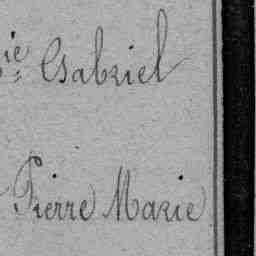 ie Gabriel
Pierre Marie